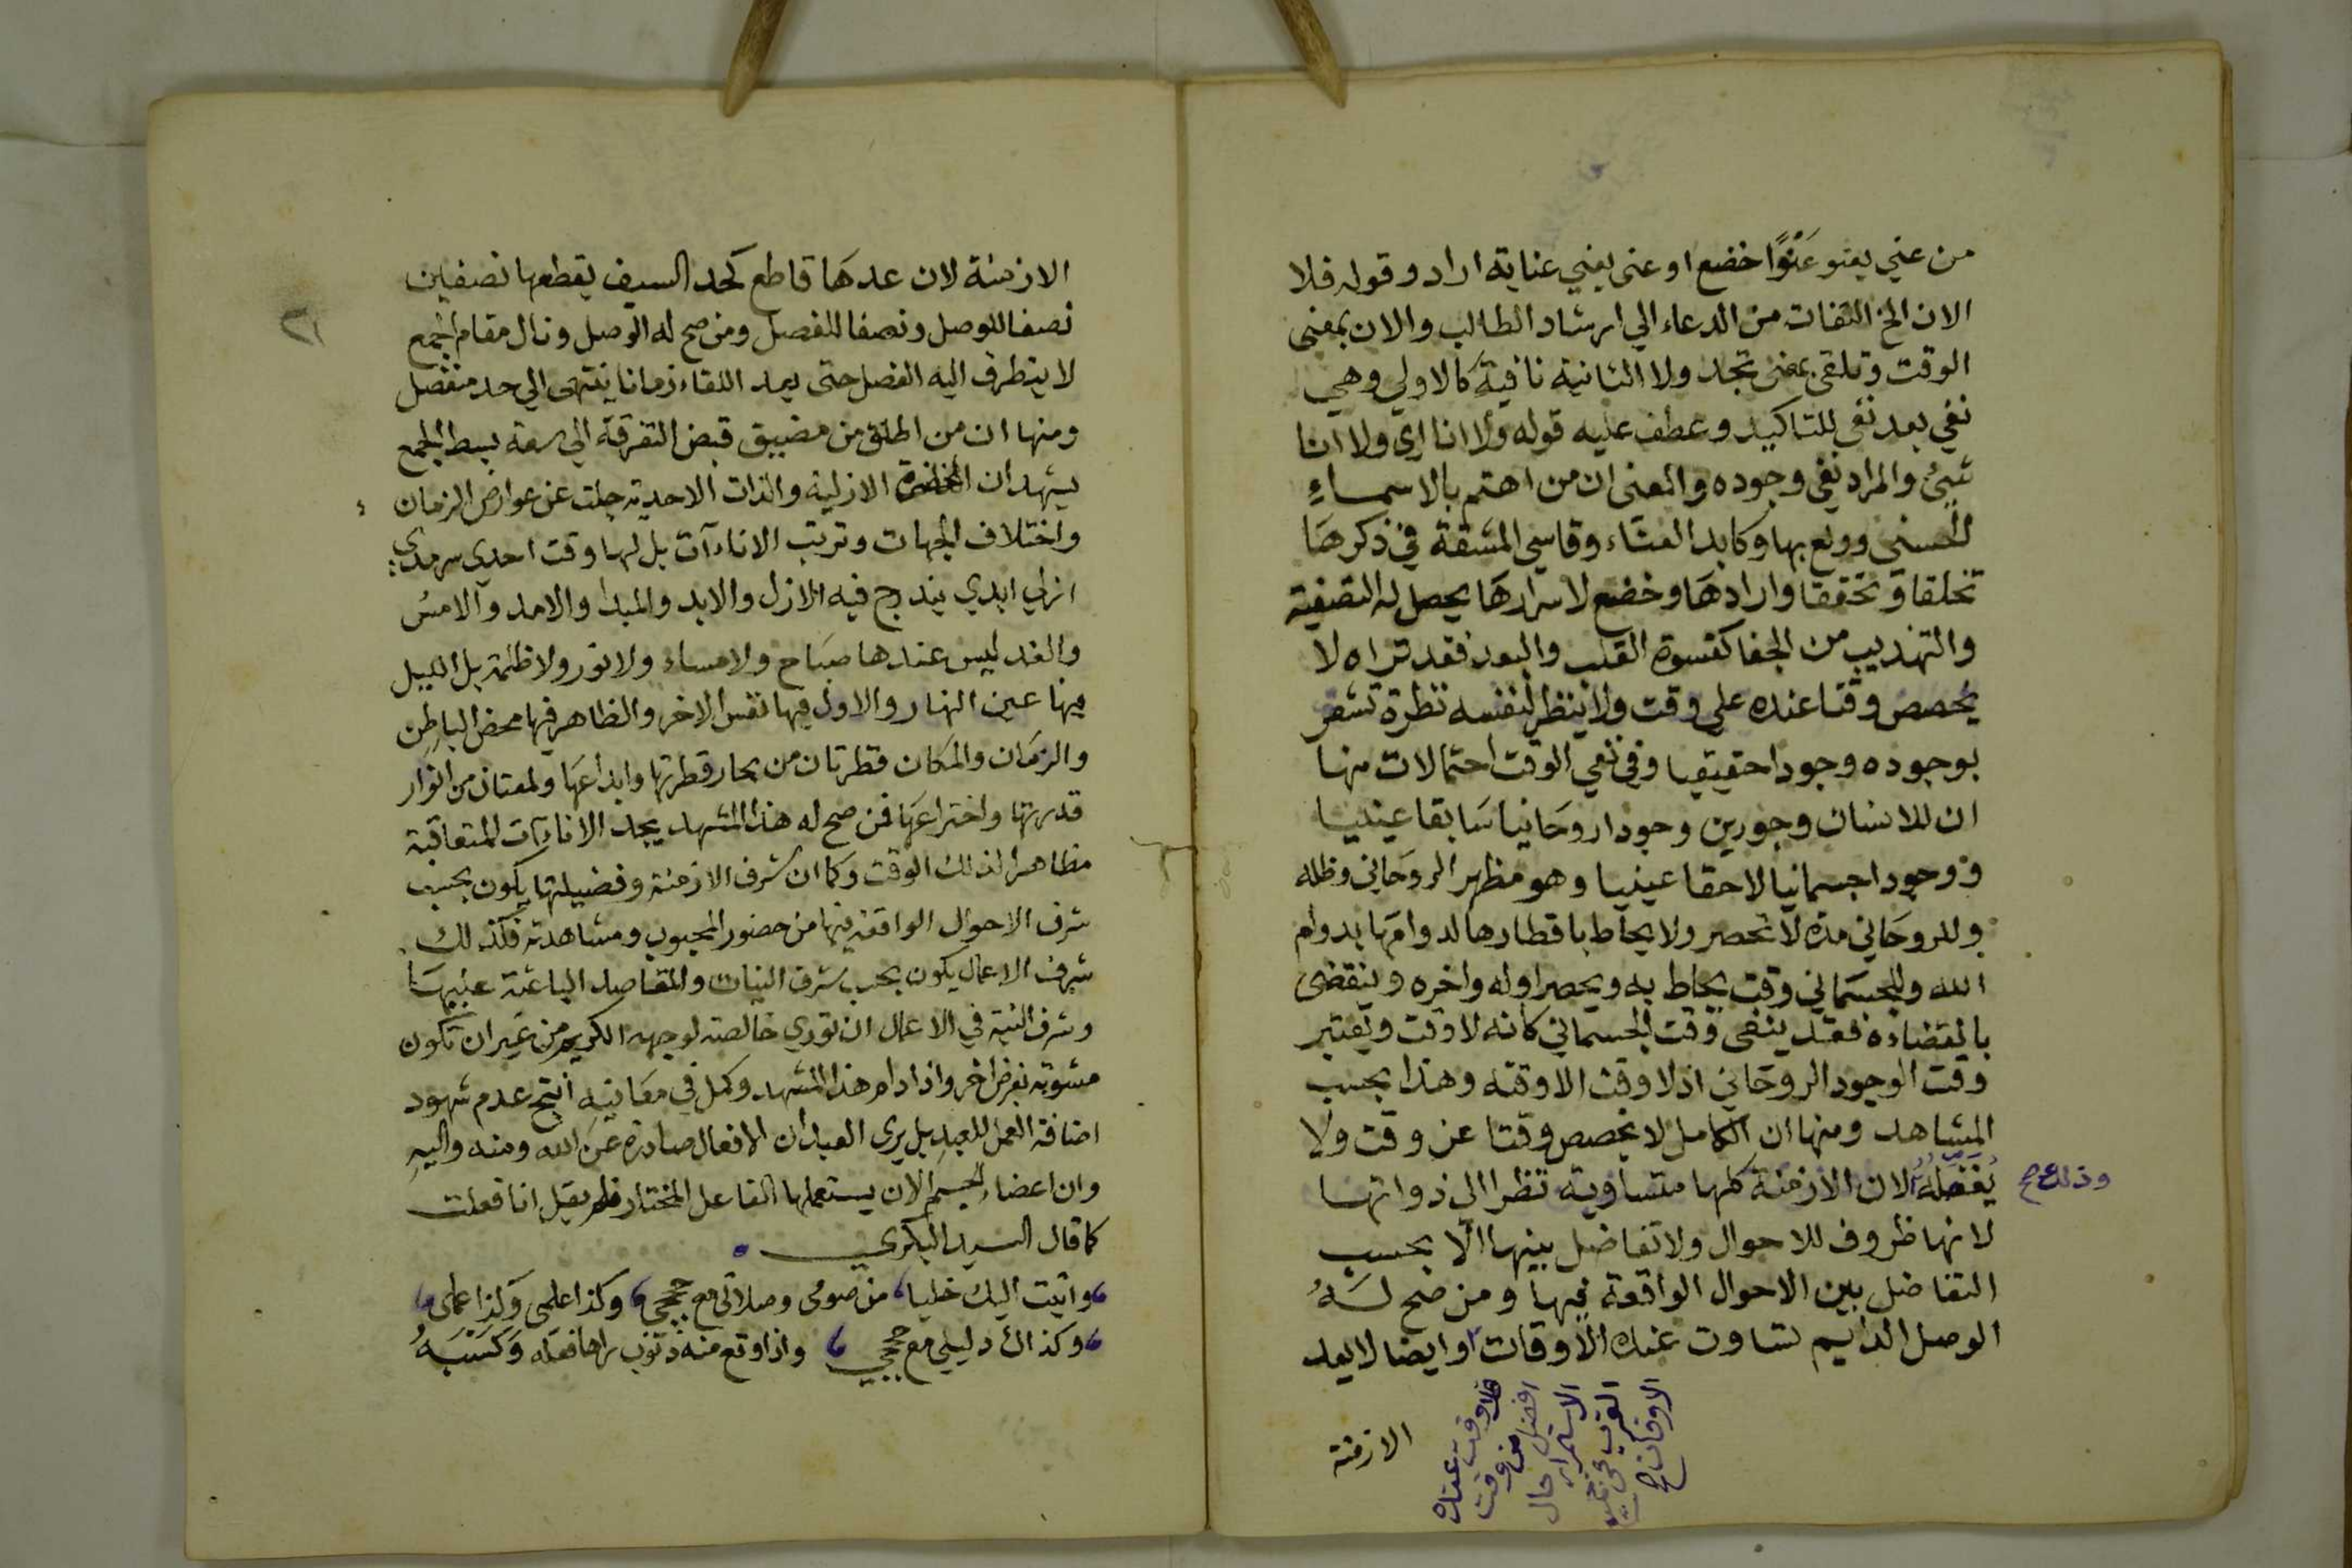 من عني يعنو عَنْوًا خضع او عنى يعني عناية اراد وقوله فلا
الان الخ التفات من الدعاء الي ارشاد الطالب والان بمعنى
الوقت وتلقى بمعنى تجد ولا الثانية نافية كالاولي وهي
نفي بعد نفي للتاكيد وعطف عليه قوله ولا انا اري ولا انا
شيئ والمراد نفي وجوده والمعنى ان من اهتم بالاسماءِ
الحسني وولع بها وكابد العناء وقاسي المشقة في ذكرها
تخلقا وتحققا وارادها وخضع لاسرارها يحصل له التصفية
والتهذيب من الجفا كقسوة القلب والبعد فقد تراه لا
يخصص وقتا عنده علي وقت ولا ينظر لنفسه نظرة تشعر
بوجوده وجودا حقيقيا وفي نفي الوقت احتمالات منها
ان للانسان وجودين وجودا روحانيا سابقا غيبيا
ووجودا جسمانيا لاحقا عينيا وهو مظهر الروحاني وظله
وللروحاني مدة لا تحصر ولا يحاط باقطارها لدوامها بدوام
الله وللجسماني وقت يحاط به ويحصر اوله واخره وينقضى
بانقضاءه فقد ينفى وقت الجسماني كانه لا وقت ويعتبر
وقت الوجود الروحاني اذ لا وقت الا وقته وهذا بحسب
المشاهد ومنها ان الكامل لا يخصص وقتا عن وقت ولا
يُفَضِّلُهُ لان الازمنة كلها متساوية نظرا الى ذواتها
وذلك صح
لانها ظروف للاحوال ولا تفاضل بينها الا بحسب
التفاضل بين الاحوال الواقعة فيها ومن صح لهُ
الوصل الدايم تساوت عنده الاوقات او ايضا لا يعد
فلا وقت عنده
افضل من وقت
الاستمرار حال
القرب في جميع
الاوقات صح
الازمنة
٢١
الازمنة لان عدها قاطع كحد السيف يقطعها نصفين
نصفا للوصل ونصفا للفصل ومن صح له الوصل ونال مقام الجمع
لا يتطرف اليه الفصل حتى يعد اللقاء زمانا ينتهى الي حد منفصل
ومنها ان من اطلق من مضيق قبض التفرقة الي سعة بسط الجمع
يشهد ان الحضرة الازلية والذات الاحدية جلت عن عوارض الزمان
واختلاف الجهات وترتب الاناءآت بل لها وقت احدي سرمدي
ازلي ابدي يندرج فيه الازل والابد والمبدا والامد والامس
والغد ليس عندها صباح ولا مساء ولا نور ولا ظلمة بل الليل
فيها عين النهار والاول فيها نفس الاخر والظاهر فيها محض الباطن
والزمان والمكان قطرتان من بحار قطرتها وابداعها ولمعتان من انوار
قدرتها واختراعها فمن صح له هذا المشهد يجد الاناءآت المتعاقبة
مظاهر لذلك الوقت وكما ان شرف الازمنة وفضيلتها يكون بحسب
شرف الاحوال الواقعة فيها من حضور المحبوب ومشاهدته فكذلك
شرف الاعمال يكون بحسب شرف النيات والمقاصد الباعثة عليها
وشرف النية في الاعمال ان تؤدي خالصة لوجهه الكريم من غير ان تكون
مشوبة بغرض اخر واذا دام هذا المشهد وكمل في معانيه انتج عدم شهود
اضافة العمل للعبد بل يرى العبد ان الافعال صادرة عن الله ومنه واليهِ
وان اعضاء الجسم الان يستعملها الفاعل المختار فلم يقل انا فعلت
كما قال السيد البكري
واتيت اليك خليا من صومى وصلاتى مع حججي وكذا علمى وكذا عملى
وكذاك دليلى مع حججي واذا وقع منه ذنوب يراها فعله وَكَسْبَهُ